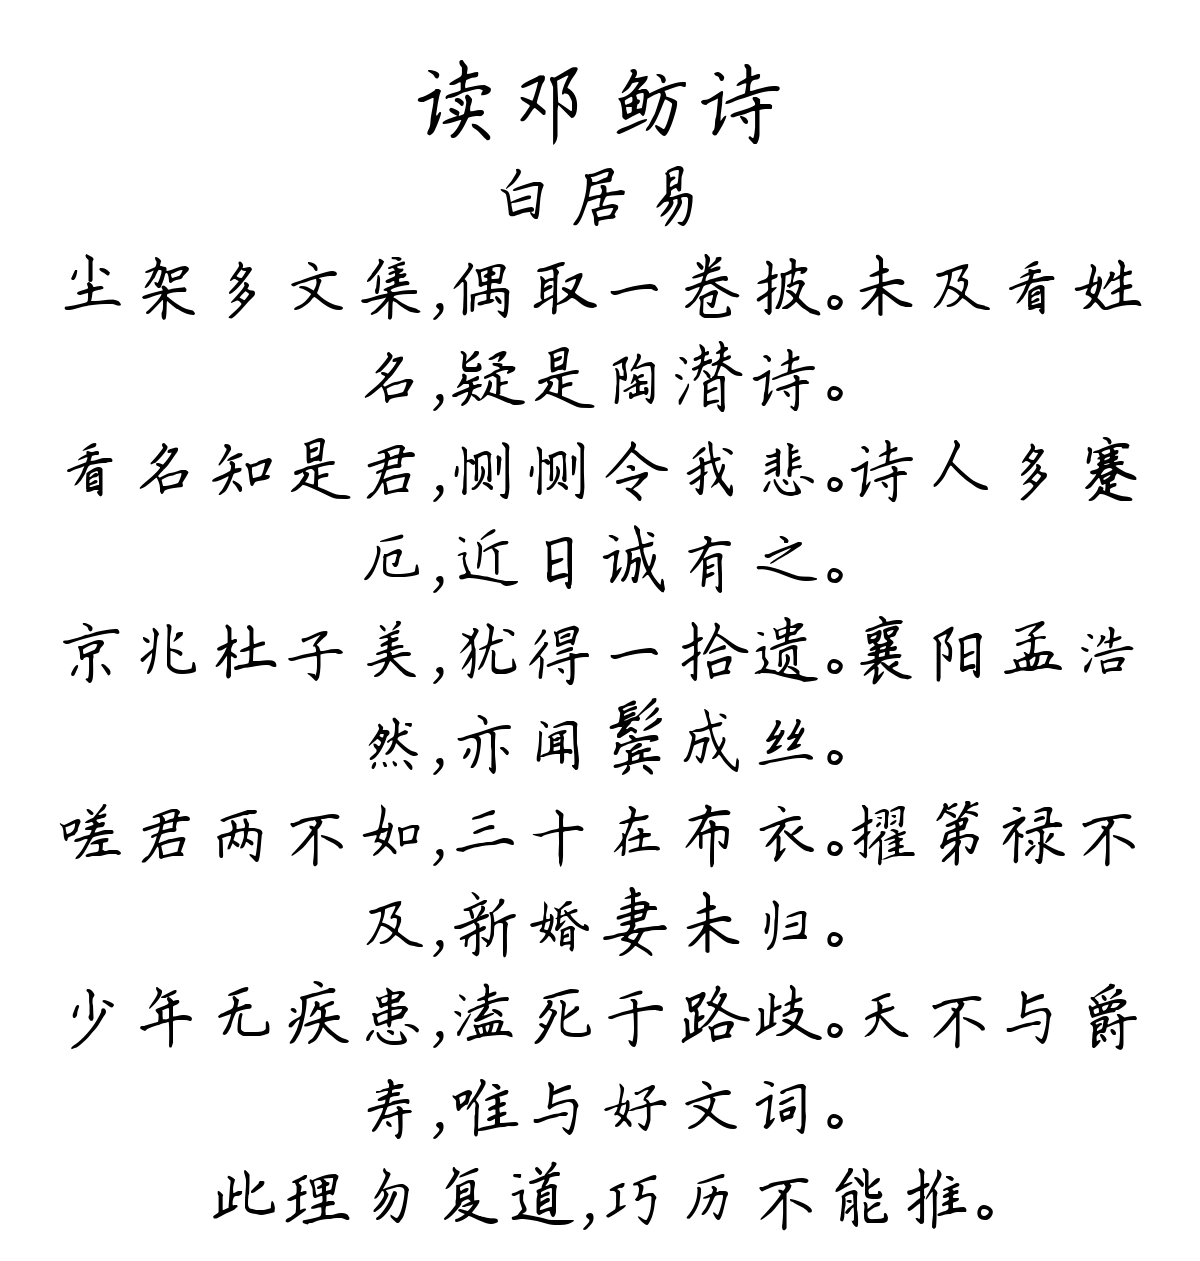 读邓鲂诗
白居易
尘架多文集,偶取一卷披。未及看姓
名,疑是陶潜诗。
看名知是君,恻恻令我悲。诗人多蹇
厄,近日诚有之。
京兆杜子美,犹得一拾遗。襄阳孟浩
然,亦闻鬓成丝。
嗟君两不如,三十在布衣。擢第禄不
及,新婚妻未归。
少年无疾患,溘死于路歧。天不与爵
寿,唯与好文词。
此理勿复道,巧历不能推。